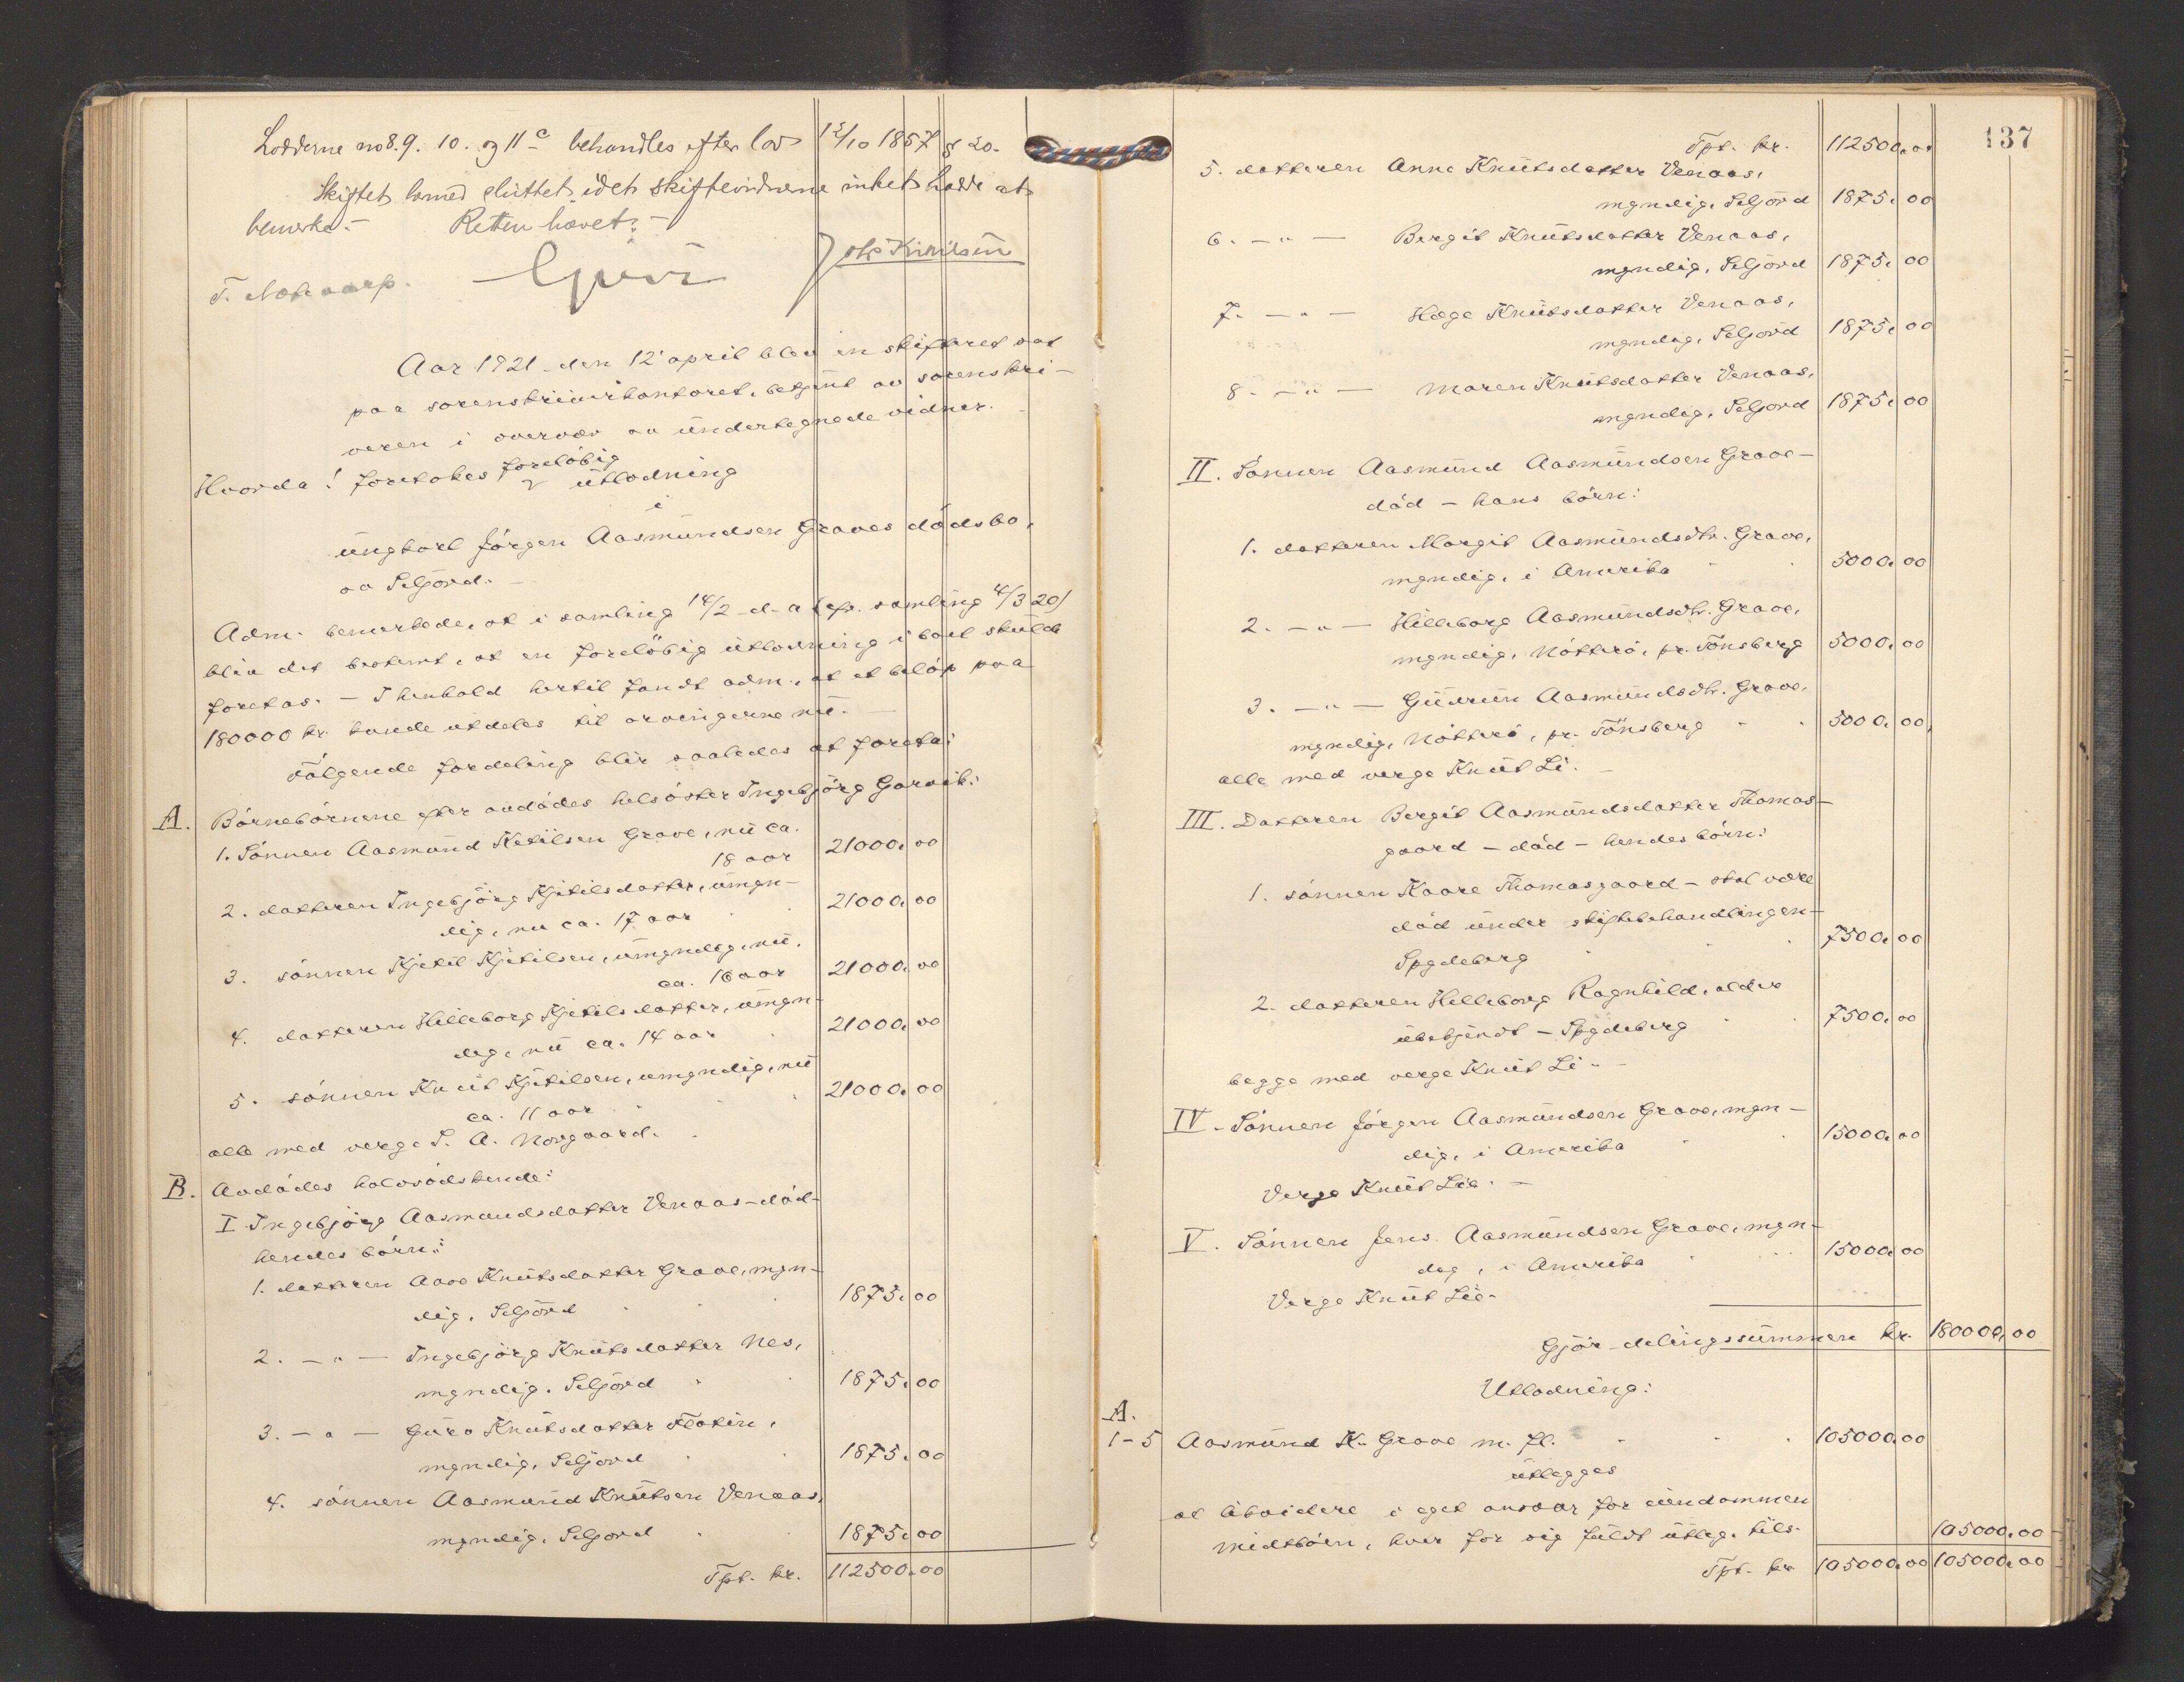 Lodderne no 8. 9. 10. og 11c behandles efter lov 12/10 1857 § 20.
Skiftet hermed sluttet, idet skiftevidnerne intet hadde at
bemerke. – Retten hævet. –
Aar 1921 den 12' april blev en skifteret sat
paa sorenskriverkontoret, betjent av sorenskri-
veren i overvær av undertegnede vidner.
Hvorda! foretokes foreløbig utlodning
i
ungkarl Jørgen Aasmundsen Graves dødsbo,
av Seljord. –
Adm. bemerkede, at i samling 14/2 d. a. (cfr. samling 4/3 20)
blev det bestemt, at en foreløbig utlodning i boet skulde
foretas. – I henhold hertil fandt adm., at et beløp paa
180000 kr. kunde utdeles til arvingerne nu. –
Følgende fordeling blir saaledes at foreta:
A. Børnebørnene efter avdødes helsøster Ingebjørg Garvik:
1. Sønnen Aasmund Ketilsen Grave, nu ca.
18 aar 21000. 00
2. datteren Ingebjørg Kjetilsdatter, umyn-
dig, nu ca. 17 aar 21000. 00
3. sønnen Kjetil Kjetilsen, umyndig, nu
ca. 16 aar 21000. 00
4. datteren Hilleborg Kjetilsdatter, umyn-
dig, nu ca. 14 aar 21000. 00
5. sønnen Knut Kjetilsen, umyndig, nu
ca. 11 aar 21000. 00
alle med verge S. A. Norgaard.
B. Avdødes halvsødskende:
I Ingebjørg Aasmundsdatter Venaas – død –
hendes børn:
1. datteren Aase Knutsdatter Grave, myn-
dig, Seljord 1875. 00
2. – " – Ingebjørg Knutsdatter Nes,
myndig, Seljord 1875. 00
3. – " – Guro Knutsdatter Flatin,
myndig, Seljord 1875. 00
4. sønnen Aasmund Knutsen Venaas,
myndig, Seljord 1875. 00
Tpt. kr. 112500. 00
137
Tpt. kr. 112500. 00
5. datteren Anne Knutsdatter Venaas,
myndig, Seljord 1875. 00
6. – " – Bergit Knutsdatter Venaas,
myndig, Seljord 1875. 00
7. – " – Hæge Knutsdatter Venaas,
myndig, Seljord 1875. 00
8. – " – Maren Knutsdatter Venaas,
myndig, Seljord 1875. 00
II. Sønnen Aasmund Aasmundsen Grave –
død – hans børn:
1. datteren Margit Aasmundsdtr. Grave,
myndig, i Amerika 5000. 00
2. – " – Hilleborg Aasmundsdtr. Grave,
myndig, Nøtterø, pr. Tønsberg 5000. 00
3. – " – Gudrun Aasmundsdtr. Grave,
myndig, Nøtterø, pr. Tønsberg 5000. 00
alle med verge Knut Li. –
III. Datteren Bergit Aasmundsdatter Thomas-
gaard – død – hendes børn:
1. sønnen Kaare Thomasgaard – skal være
død under skiftebehandlingen –
Spydeberg 7500. 00
2. datteren Hilleborg Ragnhild, alder
ubekjendt – Spydeberg 7500. 00
begge med verge Knut Li. –
IV. Sønnen Jørgen Aasmundsen Grave, myn-
dig, i Amerika 15000. 00
Verge Knut Lie. –
V. Sønnen Jens Aasmundsen Grave, myn-
dig, i Amerika 15000. 00
Verge Knut Lie.
Gjør delingssummen kr. 180000. 00
Utlodning:
A.
1-5 Aasmund K. Grave m. fl. 105000. 00
utlegges
at likvidere i eget ansvar for eiendommen
Midtbøen, hver for sig fuldt utlæg, tils. 105000. 00
Tpt. kr. 105000. 00 105000. 00